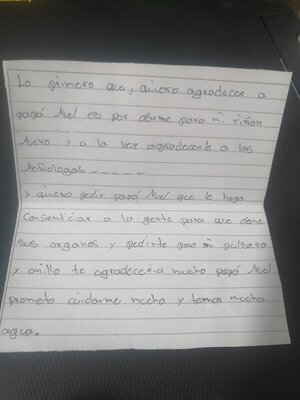 Lo primero que, quiero agradecer a
papá Nuel es por darme para mi riñon
Nuevo y a la vez agradecerle a las
Nefrologas.....
y quiero pedir papá Nuel que le haga
Consentizar a la gente para que done
sus organos y pedirte para mi pulsera
y anillo te agradeceria mucho papá Nuel
prometo cuidarme mucho y tomar mucha
agua.